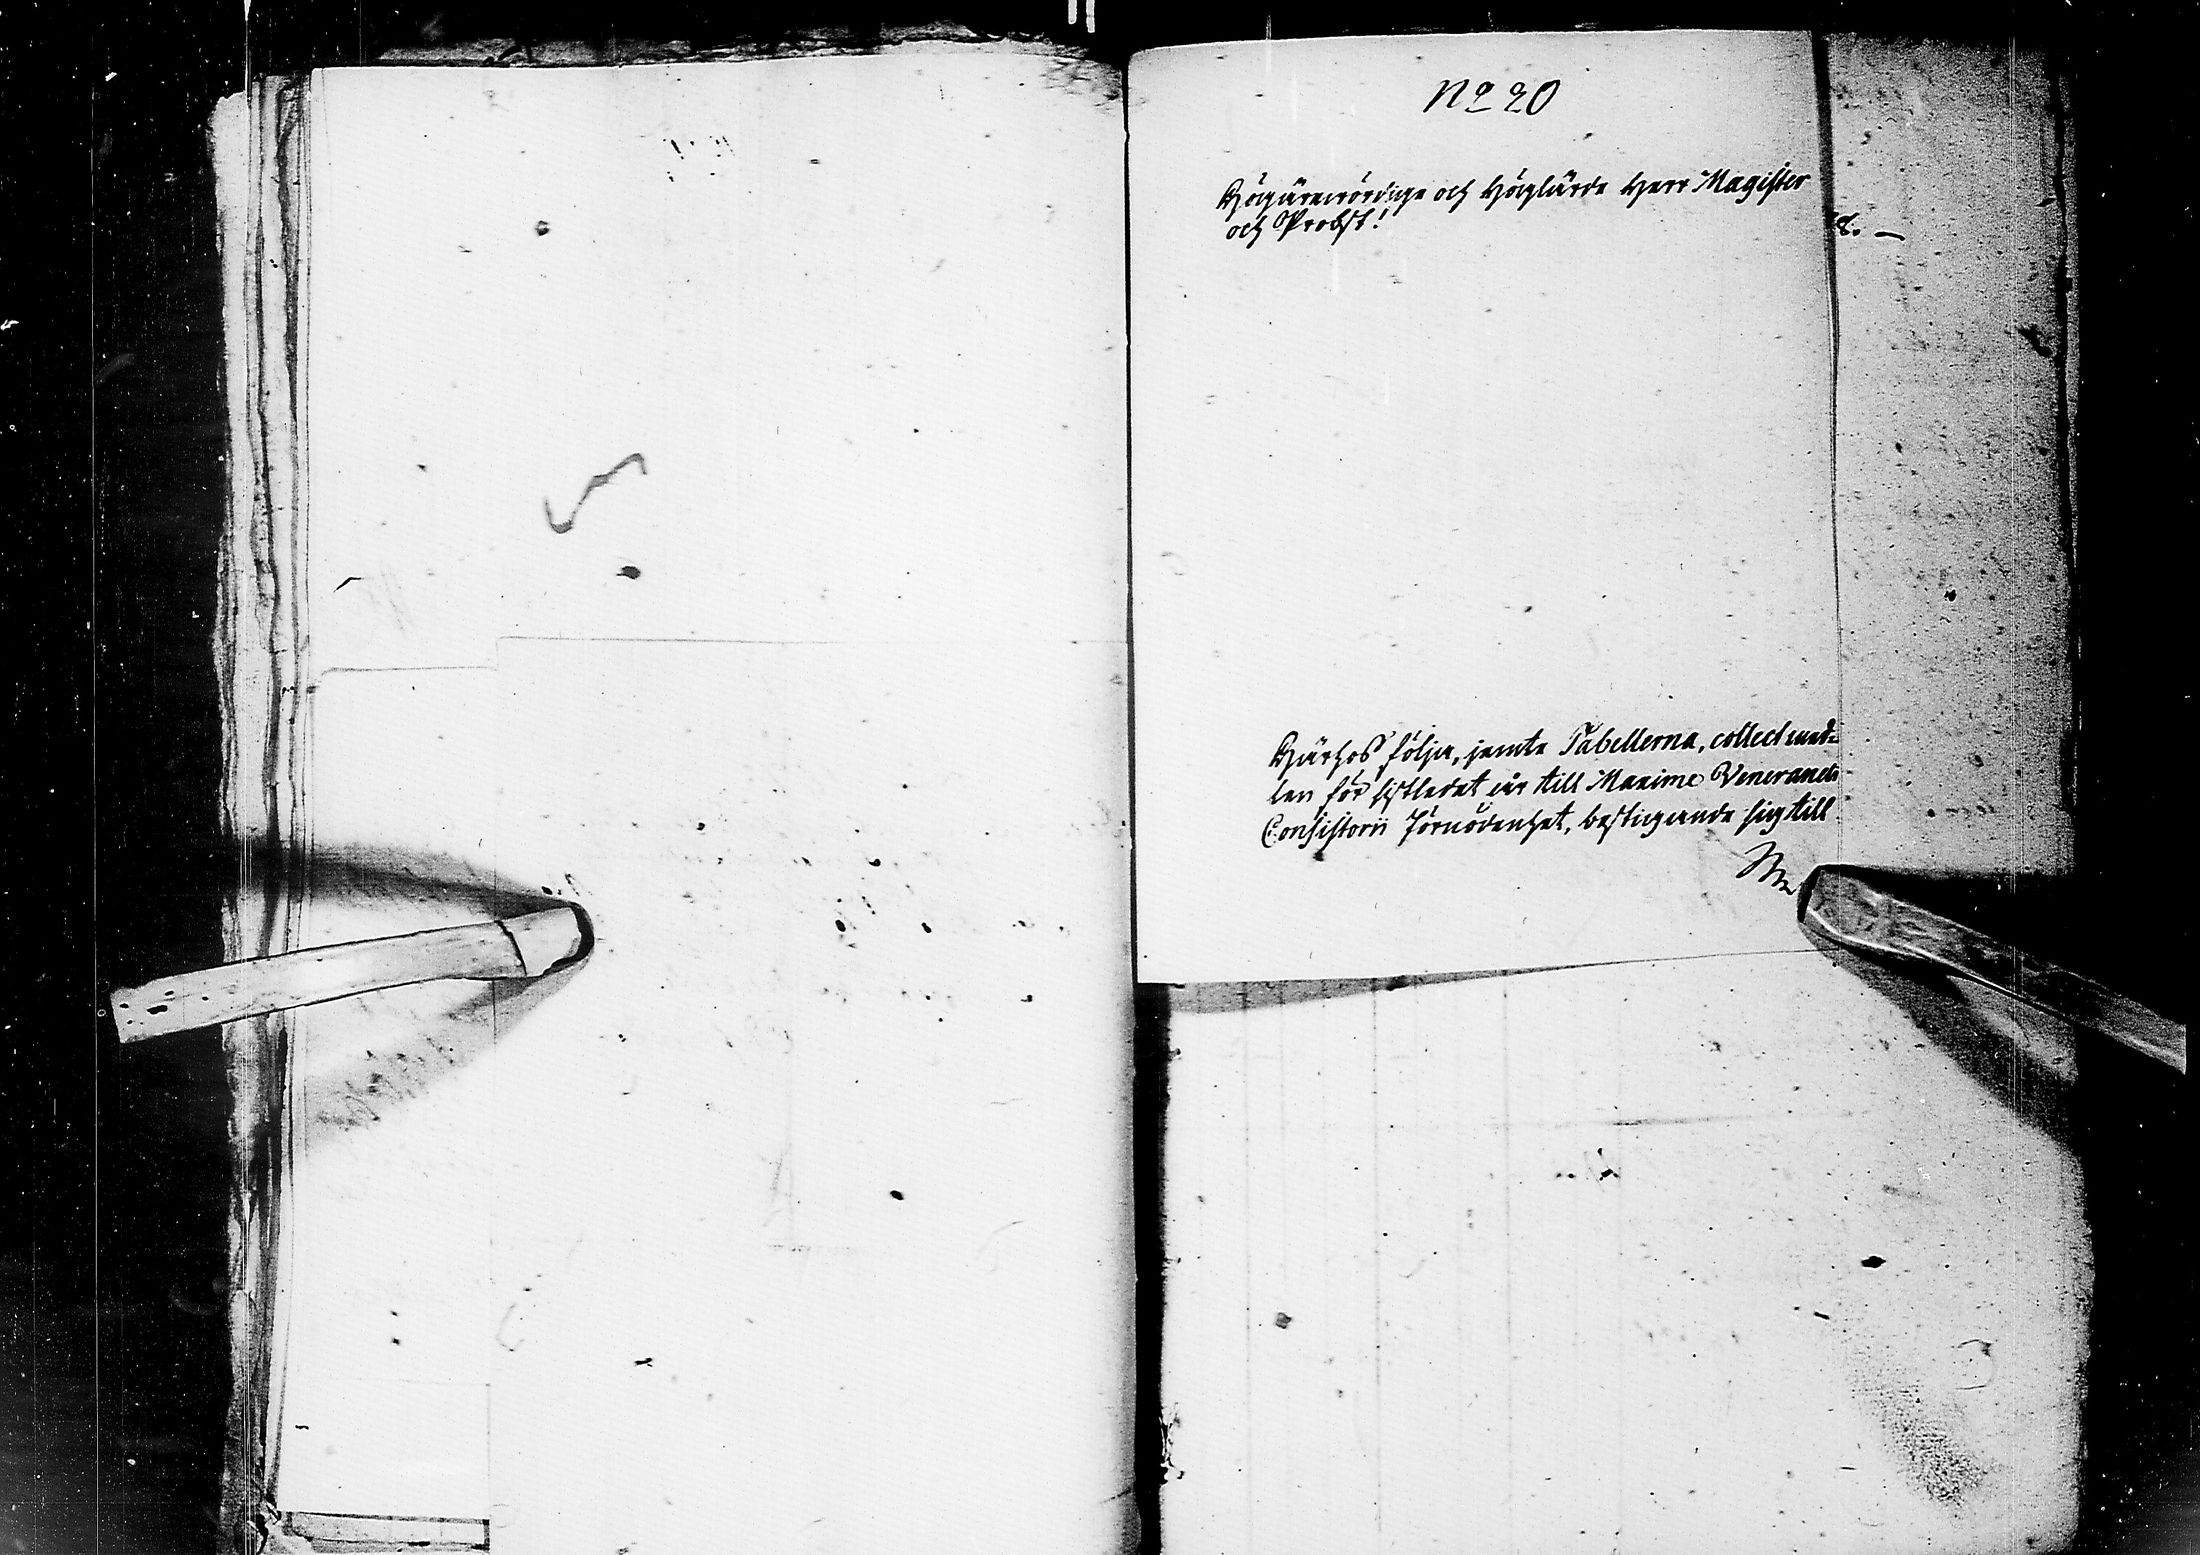 No 20
Högärewördige och Höglärde Herr Magister
och Probst!
8. —
Härhos följa, jemte Tabellerna, collect med-
len för sistledet år till Maxime Venerandi
Consistorii Förnödenhet, bestigande sig till